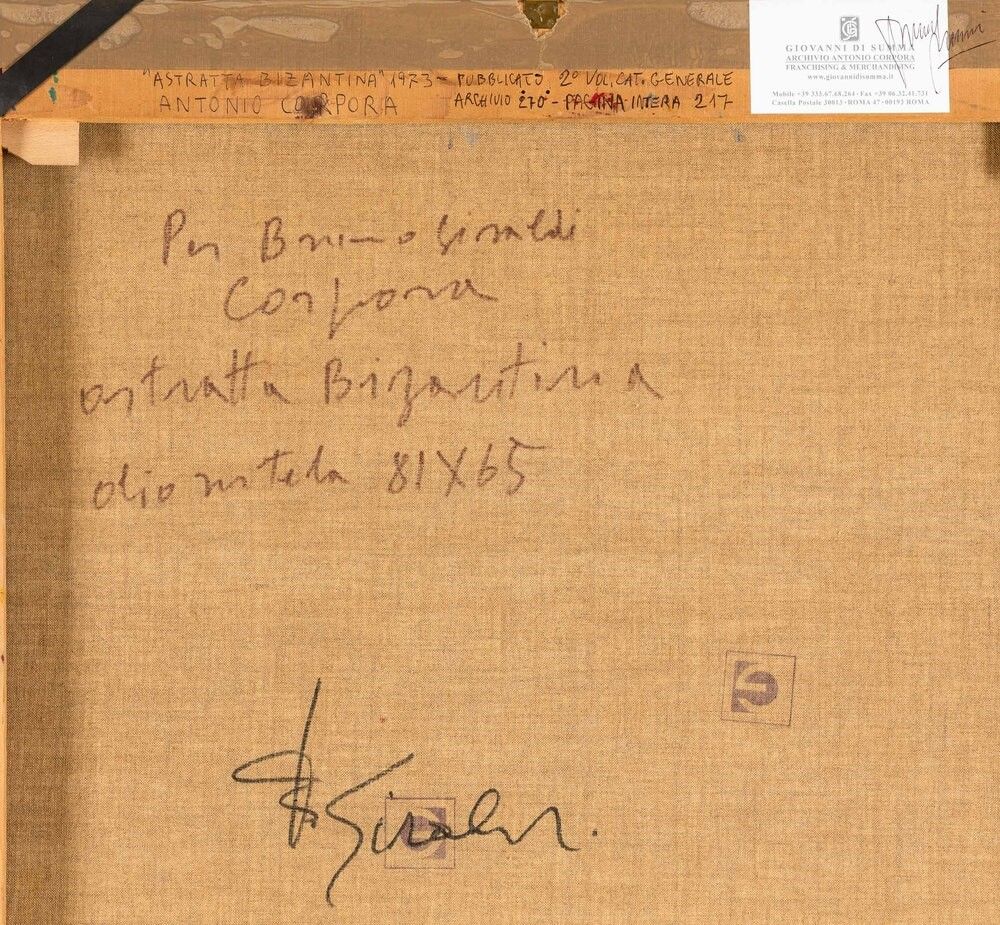 "ASTRATTA BIZANTINA" 1973 - PUBBLICATO 2° VOL. CAT. GENERALE
ANTONIO CORPORA ARCHIVIO 270 - PAGINA INTERA 217
GIOVANNI DI SUMMA
ARCHIVIO ANTONIO CORPORA
FRANCHISING & MERCHANDISING
www.giovannidisumma.it
Mobile +39 333.67.68.264 - Fax +39 06.32.41.731
Casella Postale 30813 - ROMA 47 - 00193 ROMA
Per Bruno Giraldi
Corpora
astratta Bizantina
olio su tela 81X65
B. Giraldi.